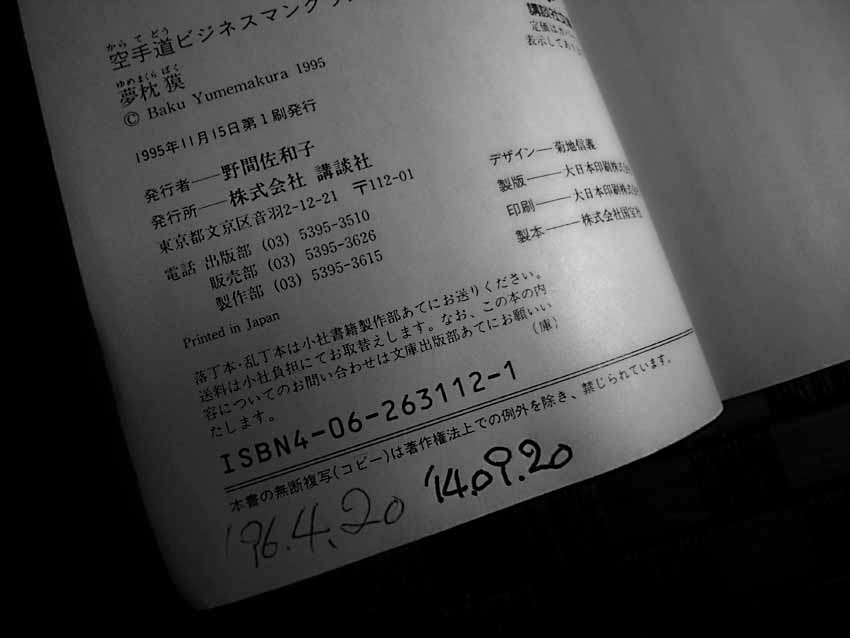 からてどう
空手道ビジネスマンクラ
ゆめまくらばく
夢枕 獏
© Baku Yumemakura 1995
1995年11月15日第1刷発行
発行者——野間佐和子
発行所——株式会社 講談社
東京都文京区音羽2-12-21 〒112-01
電話 出版部 (03) 5395-3510
販売部 (03) 5395-3626
製作部 (03) 5395-3615
Printed in Japan
定価はカバ
表示してあり
デザイン——菊地信義
製版——大日本印刷株式
印刷——大日本印刷株式
製本——株式会社国宝社
落丁本・乱丁本は小社書籍製作部あてにお送りください。
送料は小社負担にてお取替えします。なお、この本の内
容についてのお問い合わせは文庫出版部あてにお願いい
たします。
(庫)
ISBN4-06-263112-1
本書の無断複写(コピー)は著作権法上での例外を除き、禁じられています。
'96.4.20
'14.09.20